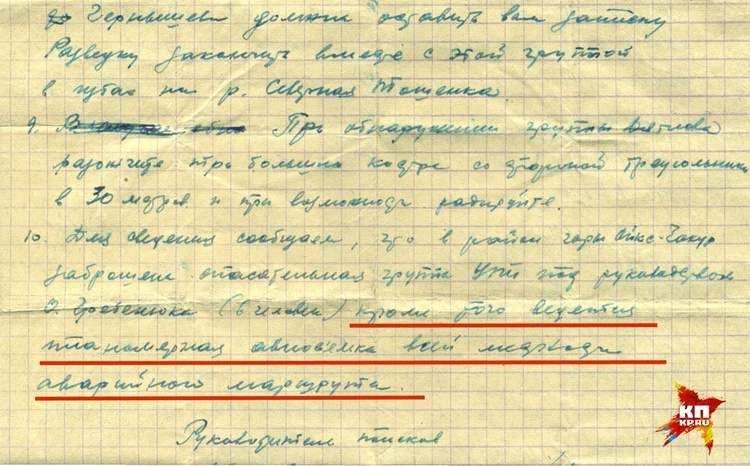 Чернышева должна оставить вам записку
Разведку закончить вместе с этой группой
в чумах на р. Северная Тошемка
9. При обнаружении группы Дятлова
разожгите три больших костра со стороной треугольника
в 30 метров и при возможности радируйте.
10. Для сведения сообщаем, что в район горы Ойкс-Чакур
заброшена спасательная группа УПИ под руководством
О. Гребенюка (6 человек) кроме того ведется
планомерная авиосъемка всей
аварийного маршрута.
Руководители поисков
КП
KP.RU